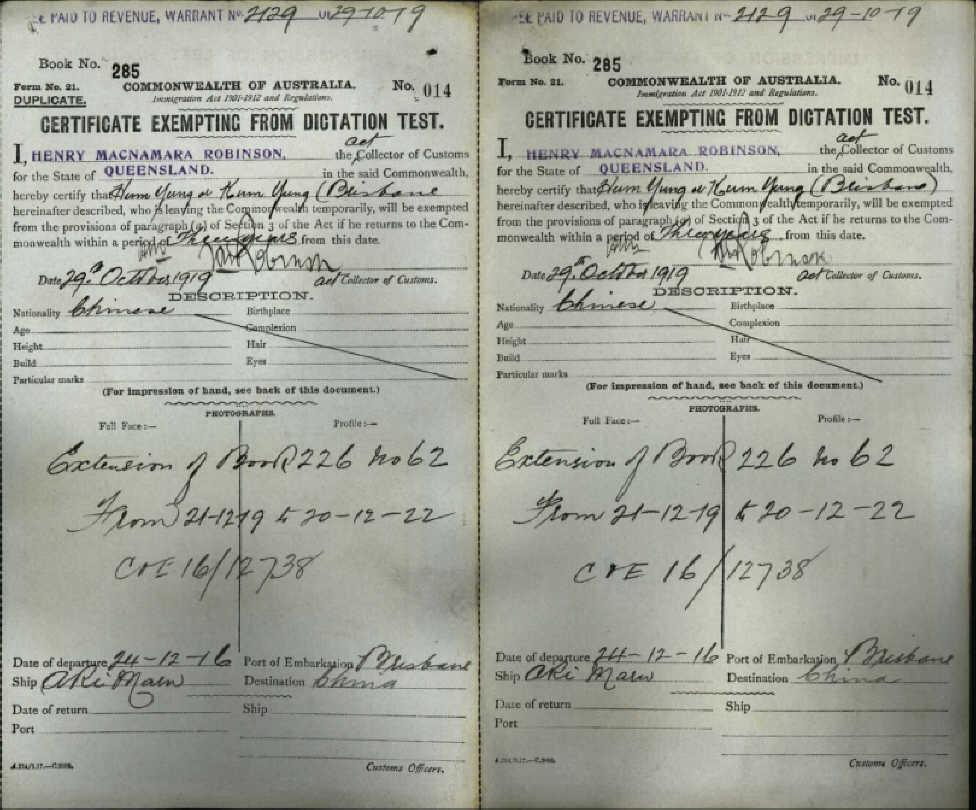 FEE PAID TO REVENUE, WARRANT No 2129 of 29-10-19
Book No. 285
Form No. 21.
COMMONWEALTH OF AUSTRALIA.
No. 014
DUPLICATE.
Immigration Act 1901-1912 and Regulations.
CERTIFICATE EXEMPTING FROM DICTATION TEST.
I, HENRY MACNAMARA ROBINSON, the act Collector of Customs
for the State of QUEENSLAND. in the said Commonwealth,
hereby certify that Hum Yung or Kum Yung (Brisbane
hereinafter described, who is leaving the Commonwealth temporarily, will be exempted
from the provisions of paragraph (a) of Section 3 of the Act if he returns to the Com-
monwealth within a period of Three years from this date.
Date 29th October 1919 act Collector of Customs.
DESCRIPTION.
Nationality Chinese Birthplace
Age Complexion
Height Hair
Build Eyes
Particular marks
(For impression of hand, see back of this document.)
PHOTOGRAPHS.
Full Face:— Profile:—
Extension of Book 226 No 62
From 21-12-19 to 20-12-22
C & E 16/12738
Date of departure 24-12-16 Port of Embarkation Brisbane
Ship Aki Maru Destination China
Date of return Ship
Port
Customs Officers.
FEE PAID TO REVENUE, WARRANT No 2129 of 29-10-19
Book No. 285
Form No. 21.
COMMONWEALTH OF AUSTRALIA.
No. 014
Immigration Act 1901-1912 and Regulations.
CERTIFICATE EXEMPTING FROM DICTATION TEST.
I, HENRY MACNAMARA ROBINSON, the act Collector of Customs
for the State of QUEENSLAND. in the said Commonwealth,
hereby certify that Hum Yung or Kum Yung (Brisbane)
hereinafter described, who is leaving the Commonwealth temporarily, will be exempted
from the provisions of paragraph (a) of Section 3 of the Act if he returns to the Com-
monwealth within a period of Three years from this date.
Date 29th October 1919 act Collector of Customs.
DESCRIPTION.
Nationality Chinese Birthplace
Age Complexion
Height Hair
Build Eyes
Particular marks
(For impression of hand, see back of this document.)
PHOTOGRAPHS.
Full Face:— Profile:—
Extension of Book 226 No 62
From 21-12-19 to 20-12-22
C & E 16/12738
Date of departure 24-12-16 Port of Embarkation Brisbane
Ship Aki Maru Destination China
Date of return Ship
Port
Customs Officers.